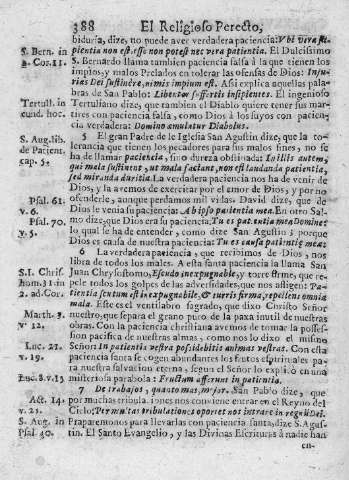 388 El Religioso Perecto,
biduria, dize, no puede aver verdadera paciencia: Vbi vera sa-
S. Bern. in pientia non est, esse non potest nec vera patientia. El Dulcissimo
a. Cor. 11. S. Bernardo llama tambien paciencia falsa à la que tienen los
impios, y malos Prelados en tolerar las ofensas de Dios: Inju-
rias Dei sustinere, nimis impium est. Assi explica aquellas pala-
bras de San Pablo: Libenter suffertis insipientes. El ingenioso
Tertull. in Tertuliano dize, que tambien el Diablo quiere tener sus mar-
cund. hoc. tires con paciencia falsa, como Dios à los suyos con pacien-
cia verdadera: Domino amulatur Diabolus.
S. Aug. lib. 5 El gran Padre de le Iglesia San Agustin dize, que la to-
de Patient. lerancia que tienen los pecadores para sus malos fines, no se
cap. 5. ha de llamar paciencia, sino dureza obstinada: In illis autem,
qui mala sustinent, ut mala faciant, non est laudanda patientia,
sed miranda duritia. La verdadera paciencia nos ha de venir de
Dios, y la avemos de exercitar por el amor de Dios, y por no
Psal. 61. ofenderle, aunque perdamos mil vidas. David dize, que de
v. 6. Dios le venia su paciencia: Ab ipso patientia mea. En otro Sal-
Psal. 70. mo dize, que Dios era su paciencia: Tu es patientia mea Domine:
v. 5. lo qual se ha de entender, como dize San Agustin; porque
Dios es causa de nuestra paciencia: Tu es causa patientiæ meæ.
6 La verdadera paciencia, que recibimos de Dios, nos
libra de todos los males. A esta santa paciencia la llama San
S. I. Chris. Juan Chrysostomo, Escudo inexpugnable, y torre firme, que re-
hom. 31 in pele todos los golpes de las adversidades, que nos afligen: Pa-
2. ad Cor. tientia scutum est inexpugnabile, & turris firma, repellens omnia
mala. Este es el ventilabro sagrado, que dixo Christo Señor
Matth. 3. nuestro, que separa el grano puro de la paxa inutil de nuestras
v. 12. obras. Con la paciencia christiana avemos de tomar la posses-
sion pacifica de nuestras almas, como nos lo dixo el mismo
Luc. 21. Señor: In patientia vestra possidebitis animas vestras. Con esta
v. 19. paciencia santa se cogen abundantes los frutos espirituales pa-
ra nuestra salvacion eterna, segun el Señor lo explicò en una
Luc. 8. v. 15 misteriosa parabola: Fructum afferunt in patientia.
7 De trabajos, quanto mas, mejor. San Pablo dize, que
Act. 14. por muchas tribulaciones nos conviene entrar en el Reyno del
v. 21. Cielo: Per multas tribulationes oportet nos intrare in regnũ Dei.
S. Aug. in Praparemonos para llevarlas con paciencia santa, dize S. Agus-
Psal. 40. tin. El Santo Evangelio, y las Divinas Escrituras à nadie han
en-